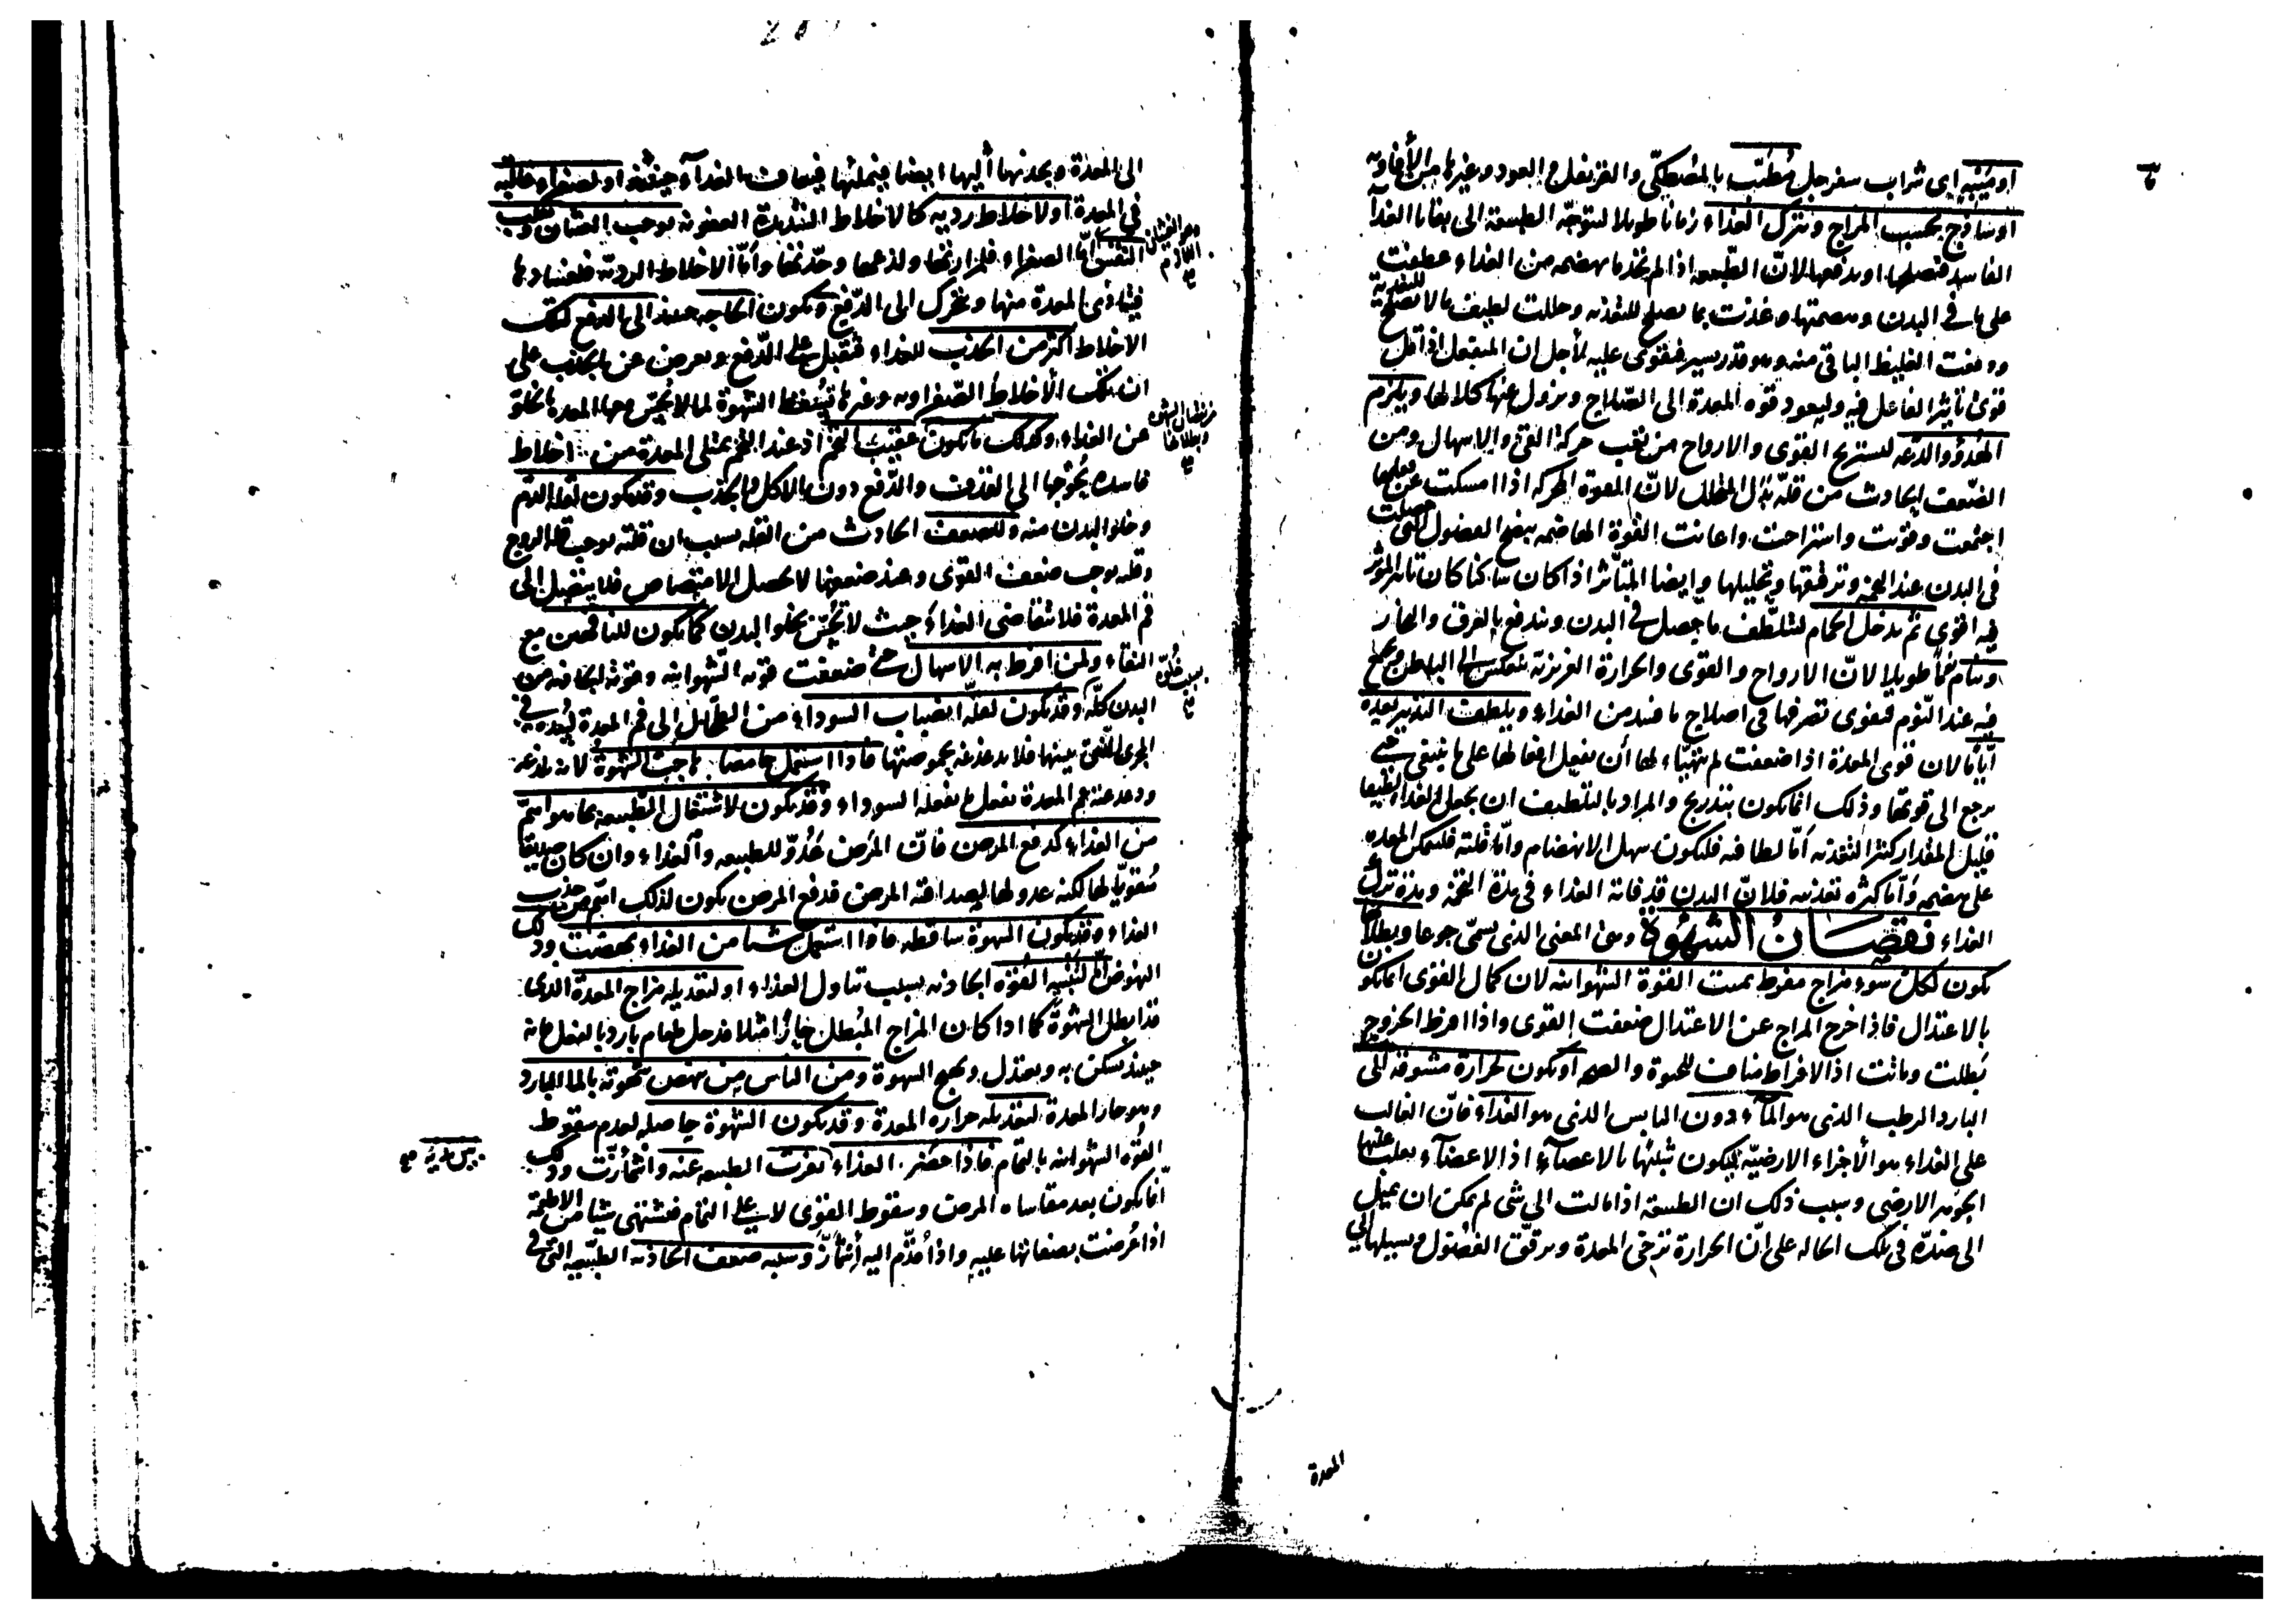 او ميبه اى شراب سفرجل مطيّب بالمصطكى والقرنفل والعود وغيرها من الأفاويه
او ساذج بحسب المزاج ويترك الغذاء زمانا طويلا لتتوجّه الطبيعة الى بقايا الغذآ
الفاسد فتصلحها او تدفعها لانّ الطبيعه اذا لم تجد ما تهضمه من الغذاء عطفت
على ما فى البدن وهضمتها وغذت بما يصلح للتغذيه وحللت لطيف ما لا يصلح للتغذية
ودفعت الغليظ الباقى منه وهو قدر يسير فتقوى عليه لأجل ان المنفعل اذا قل
قوى تأثير الفاعل فيه وليعود قوة المعدة الى الصّلاح ويزول عنها كلالها ويلزم
الهدؤ والدّعه لتستريح القوى والارواح من تعب حركة القئ والاسهال ومن
الضّعف الحادث من قلّة بدل المتحلل لانّ القوة المحركه اذا امسكت عن فعلها
اجتمعت وقويت واستراحت واعانت القوة الهاضمه بنضج الفضول التى حصلت
فى البدن عند التخمه وترقيقها وتحليلها وايضا المتأثر اذا كان ساكنا كان تاثير المؤثر
فيه اقوى ثم يدخل الحمام لتتلطّف ما حصل فى البدن ويندفع بالعرق والبخار
وينام نوما طويلا لانّ الارواح والقوى والحرارة الغريزية تنعكس الى الباطن ويجتمع
فيه عند النّوم فيقوى تصرفها فى اصلاح ما فسد من الغذاء ويلطف التدبير بعده
أيّاما لان قوى المعدة اذا ضعفت لم تتهيّاء لها أن تفعل افعالها على ما ينبغى حتى
يرجع الى قوتها وذلك انما يكون بتدريج والمراد بالتلطيف ان يجعل الغذا لطيفا
قليل المقدار كثير التغذيه أمّا لطافته فليكون سهل الانهضام وأمّا قلته فليتمكن المعده
على هضمه وأمّا كثرة تغذيته فلانّ البدن قد فاته الغذاء فى مدة التخمه ومدة ترك
الغذاء نقصان الشهوة وهى المعنى الذى يسمّى جوعا وبطلانها
يكون لكل سوء مزاج مفرط يميت القوة الشهوانيه لان كمال القوى انما يكون
بالاعتدال فاذا خرج المزاج عن الاعتدال ضعفت القوى واذا افرط الخروج
بطلت وماتت اذ الافراط مناف للحيوة والصحه او يكون لحرارة مشوقه الى
البارد الرطب الذى هو المآء دون اليابس الذى هو الغذاء فانّ الغالب
على الغذاء هو الأجزاء الارضيّه ليكون شبيها بالاعضآء اذ الاعضآء يغلب عليها
الجوهر الارضى وسبب ذلك ان الطبيعة اذا مالت الى شئ لم يمكن ان يميل
الى ضدّه فى تلك الحاله على انّ الحرارة ترخى المعدة وترقّق الفضول وتسيلها الى
المعدة
الى المعدة وتجذبها أليها ايضا فيملئها فيعاف الغذآء حينئذ او لصفراء غالبه
فى المعدة او لاخلاط رديه كالاخلاط الشديدة العفونه يوجب الغثيان وتقلب
النفس أمّا الصفراء فلمرارتها ولذعها وحدّتها وأمّا الاخلاط الرديّه فلفسادها
فيتاذى المعدة منها وتتحرك الى الدّفع ويكون الحاجه حينئذ الى الدفع لتلك
الاخلاط أكثر من الجذب للغداء فتقبل على الدّفع وتعرض عن الجذب على
ان تلك الأخلاط الصّفراويه وغيرها تسقط الشهوة لما لا يحسّ معها المعدة بالخلو
عن الغذاء وكذلك ما يكون عقيب التخم اذ عند التخم يمتلى المعدة من اخلاط
فاسده يُحوجها الى القذف والدّفع دون الاكل والجذب وقد يكون لقلة الدّم
وخلو البدن منه وللضعف الحادث من القله بسبب ان قلته يوجب قلة الروح
وقلته يوجب ضعف القوى وعند ضعفها لا يحصل الامتصاص فلا يتصل الى
فم المعدة فلا يتقاضى الغذاء حيث لا تُحسّ بخلو البدن كما يكون للناقهين مع
النقاء ولمن افرط به الاسهال حتى ضعفت قوته الشهوانيه وقوته الجاذبه من
البدن كلّه وقد يكون لقلّة انصباب السوداء من الطحال الى فم المعدة لسُدّه فى
المجرى الّتى بينهما فلا يدغدغه بحموضتها فاذا استعمل حامضا هاجت الشهوة لانه يلذعه
ويدغدغه فم المعدة يفعل ما يفعله السوداء وقد يكون لاشتغال الطبيعه بما هو اهمّ
من الغذاء كدفع المرض فانّ المرض عدوّ للطبيعه والغذاء وان كان صديقا
مُقويّا لها لكنه عدو لها لصداقته المرض فدفع المرض يكون لذلك اهمّ من جذب
الغذاء وقد يكون الشهوة ساقطه فاذا استعمل شيا من الغذاء نهضت وذلك
النهوض اما لتنبيه القوة الجاذبه بسبب تناول الغذاء او لتعديله مزاج المعدة الذى
قد ابطل الشهوة كما اذا كان المزاج المُبطل حارّا مثلا فدخل طعام بارد بالفعل فانه
حينئذ يسكن به ويعتدل ويهيج الشهوة ومن الناس من تنهض شهوته بالما البارد
وهو حار المعدة لتعديله حراره المعدة وقد يكون الشهوة حاصله لعدم سقوط
القوه الشهوانيه بالتمام فاذا حضر الغذاء نفرت الطبيعه عنه واشمأزّت وذلك
انّما يكون بعد مقاساه المرض وسقوط القوى لا على التمام فتشتهى شيئا من الاطعمة
اذا عُرضت بصفاتها عليه واذا قُدّم اليه إشمأزّ وسببه ضعف الجاذبه الطبيعيه التى فى
وهو الغثيان اللازم
من بطلان الشهوة وبطلانها